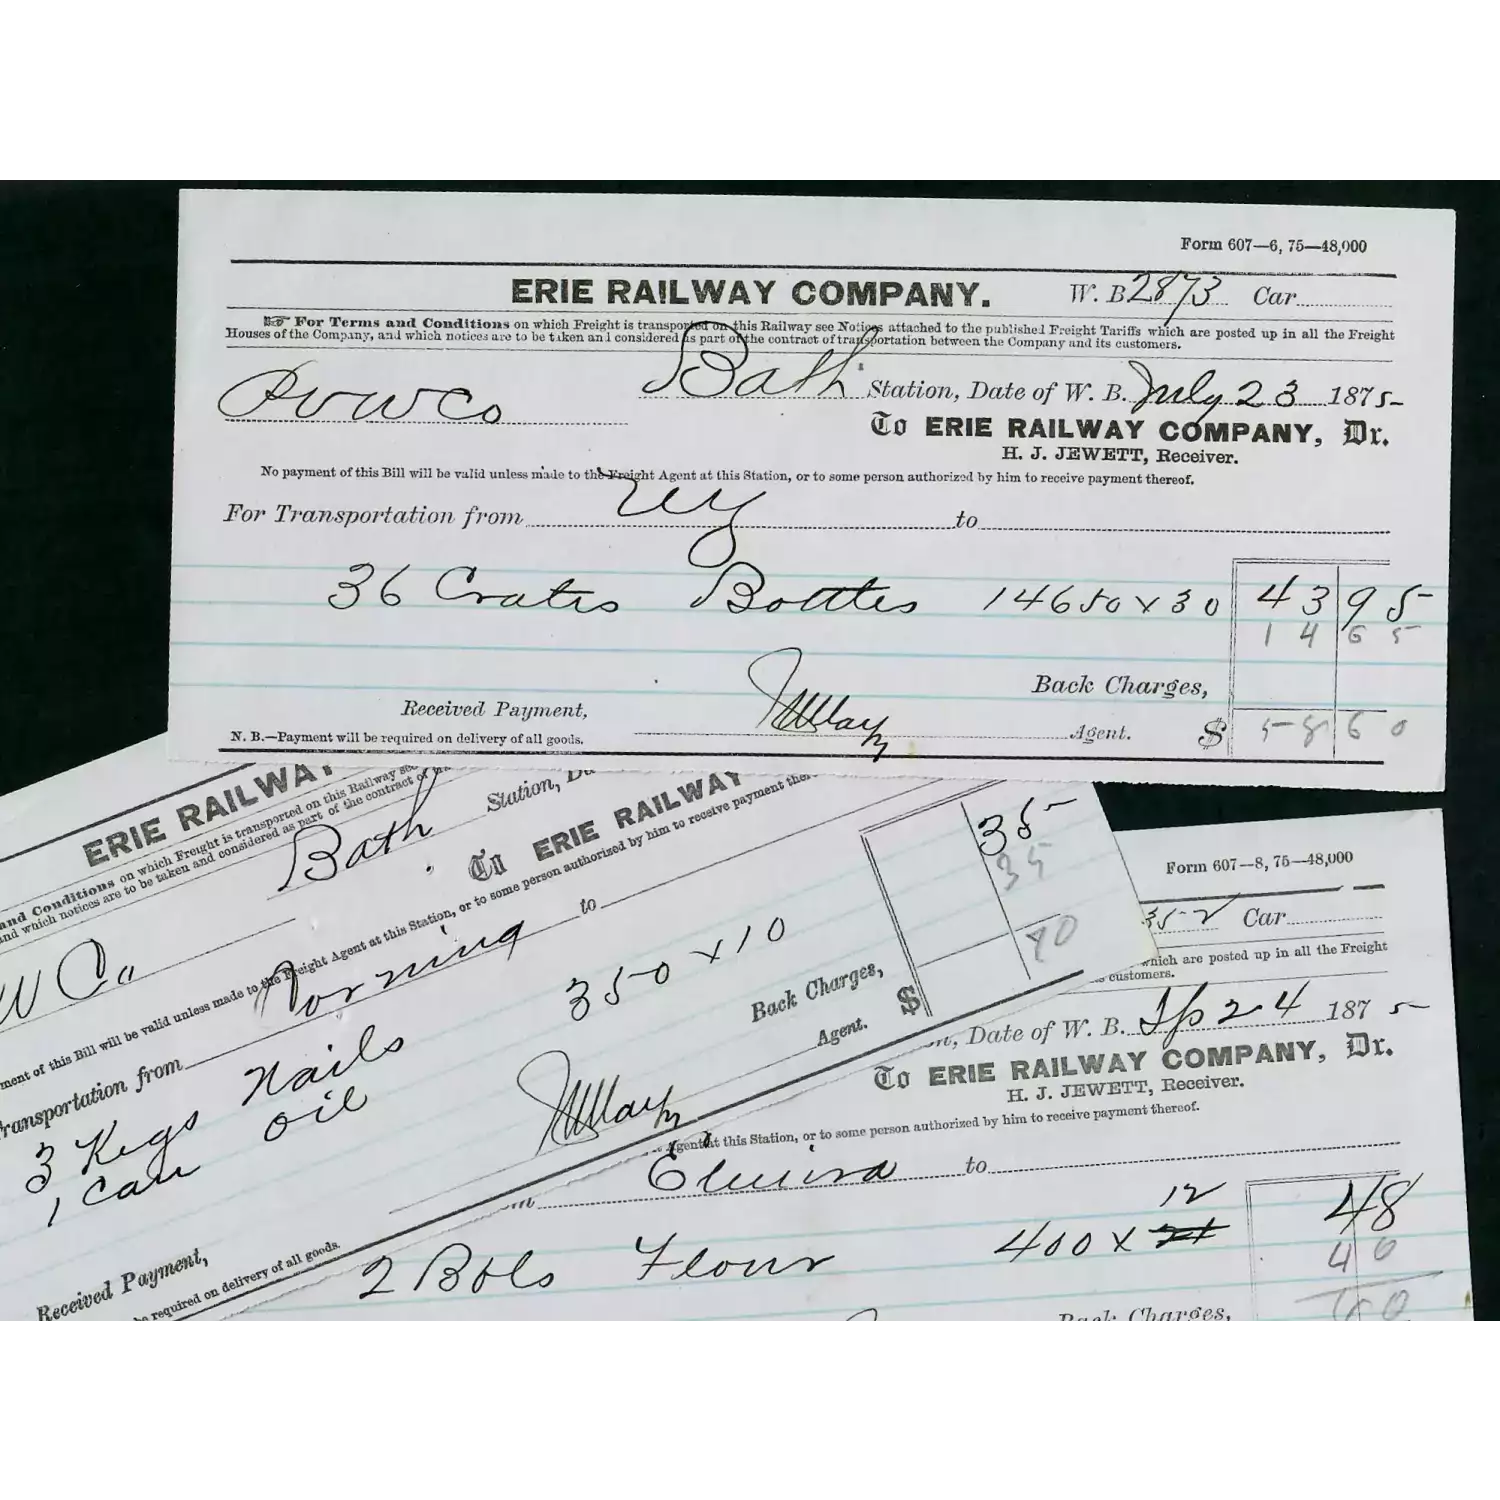 Form 607—6, 75—48,000
ERIE RAILWAY COMPANY. W. B. 2873 Car
☞ For Terms and Conditions on which Freight is transported on this Railway see Notices attached to the published Freight Tariffs which are posted up in all the Freight
Houses of the Company, and which notices are to be taken and considered as part of the contract of transportation between the Company and its customers.
Bath Station, Date of W. B. July 23 1875
To ERIE RAILWAY COMPANY, Dr.
H. J. JEWETT, Receiver.
No payment of this Bill will be valid unless made to the Freight Agent at this Station, or to some person authorized by him to receive payment thereof.
For Transportation from to
36 Crates Bottles 14650 x 30 43 95
14 65
Back Charges,
Received Payment, Agent. $ 58 60
N. B.—Payment will be required on delivery of all goods.
ERIE RAILWA
and Conditions on which Freight is transported on this Railway see
and which notices are to be taken and considered as part of the contract of
Bath Station, Da
To ERIE RAILWAY
ment of this Bill will be valid unless made to the Freight Agent at this Station, or to some person authorized by him to receive payment the
W Co
ransportation from Corning to
3 Kegs Nails 350 x 10 35
35
1 Can Oil
Back Charges,
70
Agent. $
Received Payment,
be required on delivery of all goods.
Form 607—8, 75—48,000
352 Car
which are posted up in all the Freight
customers.
on, Date of W. B. Sp 24 1875
To ERIE RAILWAY COMPANY, Dr.
H. J. JEWETT, Receiver.
Agent at this Station, or to some person authorized by him to receive payment thereof.
Elmira to
12
2 Bbls Flour 400 x 48
40
Back Charges,